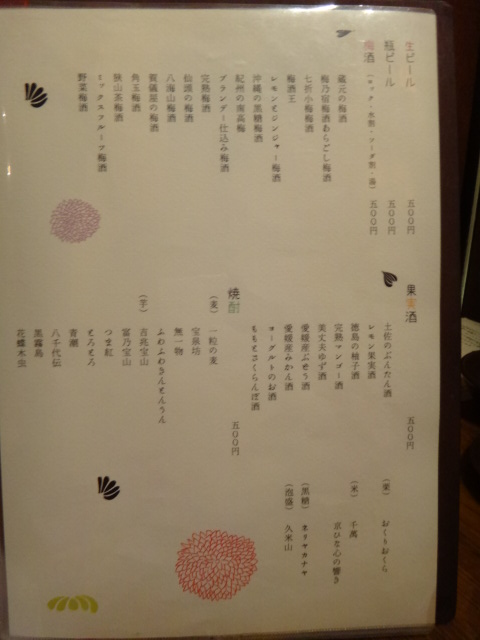 生ビール 五〇〇円
瓶ビール 五〇〇円
梅酒(ロック・水割・ソーダ割・湯) 五〇〇円
蔵元の梅酒
梅乃宿梅酒あらごし梅酒
七折小梅梅酒
梅酒王
レモンとジンジャー梅酒
沖縄の黒糖梅酒
紀州の南高梅
ブランデー仕込み梅酒
完熟梅酒
仙源の梅酒
八海山梅酒
賀儀屋の梅酒
角玉梅酒
狭山茶梅酒
ミックスフルーツ梅酒
野菜梅酒
果実酒 五〇〇円
土佐のぶんたん酒
レモン果実酒
徳島の柚子酒
完熟マンゴー酒
美丈夫ゆず酒
愛媛産ぶどう酒
愛媛産みかん酒
ヨーグルトのお酒
ももとさくらんぼ酒
焼酎 五〇〇円
(麦) 一粒の麦
宝泉坊
無一物
ふわふわきんとんうん
(芋) 吉兆宝山
富乃宝山
つま紅
そろそろ
青潮
八千代伝
黒霧島
花蝶木虫
(栗) おくりおくら
(米) 千萬
京ひな心の響き
(黒糖) まりやカナヤ
(泡盛) 久米山